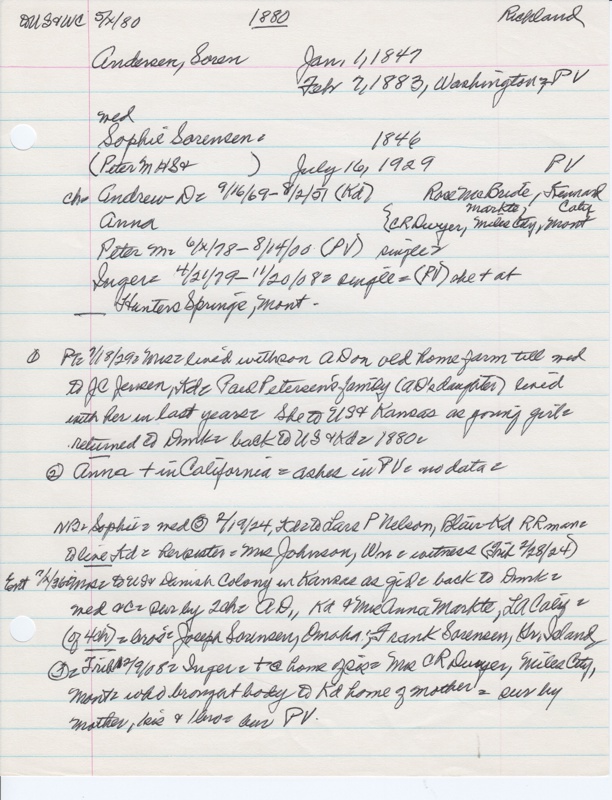 DUS&WC 5/x/80 1880 Richland
Andersen, Soren Jan, 1, 1847
Feb 7, 1883, Washington = PV
med
Sophie Sorensen = 1846
(Peter M HS& ) July 16, 1929 PV
ch= Andrew D= 9/16/69 - 8/2/51 (Kd) Rose McBride, Kennard
Anna Markte, Calif
{CR Dwyer, Miles City, Mont
Peter M= 6/x/78 - 8/14/00 (PV) single=
Inger= 4/21/79 - 11/20/08= single= (PV) she + at
Hunters Springs, Mont -
① Pt= 7/18/29= Mrs= lived with son AD on old home farm till med
to JC Jensen, Kd= Paul Petersen's family (AD's daughter) lived
with her in last years= She to US& Kansas as young girl=
returned to Dmk= back to US& Kd= 1880=
② Anna + in California = ashes in PV= no data=
NB= Sophie= med ② 2/19/24, Kd= to Lars P Nelson, Blair= Kd RR man=
to live Kd= her sister= Mrs Johnson, Wm= witness (Trib 2/28/24)
Ent 7/x/26= Mrs= to US& Danish Colony in Kansas as girl= back to Dmk=
med &c= sur by 2ch= A.D., Kd & Mrs Anna Markte, LA Calif=
(of 4ch)= bros= Joseph Sorensen, Omaha; Frank Sorensen, Gr, Island
③= Trib 12/9/08= Inger= + @ home of sis= Mrs CR Dwyer, Miles City,
Mont= who brought body to Kd home of mother= sur by
mother, sis & 1bro= bur PV.